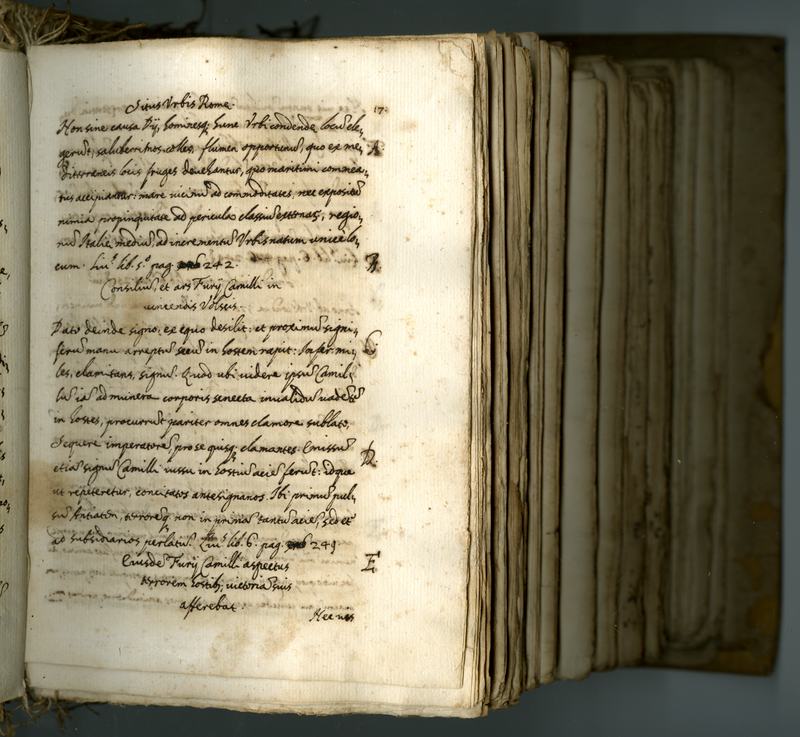 Situs Urbis Rome.
17.
Non sine causa Dij, hominesq; hunc Urbi condende locũ ele,
gerũt, saluberrimos colles, flumen opportunũ, quo ex me,
A
diterraneis locis fruges devehantur, quo maritimi commea,
tus accipiantur: mare vicinũ ad commoditates, nec expositũ
nimia propinquitate ad pericula classiũ externaᵣ, regio,
nũ Italie mediũ, ad incrementũ Urbis natum unicè lo,
cum. Liu. lib. 5.º pag. 242.
B
Consiliũ, et ars Furij Camilli in
vincendis Volscis.
Dato deinde signo, ex equo desilit: et proximũ signi,
ferũ manu arreptũ secũ in hostem rapit: Infer mi,
C
les, clamitans, signũ. Quod ubi videre ipsũ Camil,
lũ iã ad munera corporis senecta invalidũ vadentẽ
in hostes, procurrũt pariter omnes clamore sublato,
Sequere imperatorẽ, pro se quisq; clamantes. Emissũ
D
etiã signũ Camilli iussu in hostiũ aciẽ ferũt: idque
ut repeteretur, concitatos antesignanos. Ibi primũ pul,
sũ Antiatem, terrorẽq; non in primã tantũ aciẽ, sed et
ad subsidiarios perlatũ. Liu. lib. 6. pag. 249
E
Eiusdẽ Furij Camilli aspectus
terrorem hostib; victoriã suis
afferebat.
Nec